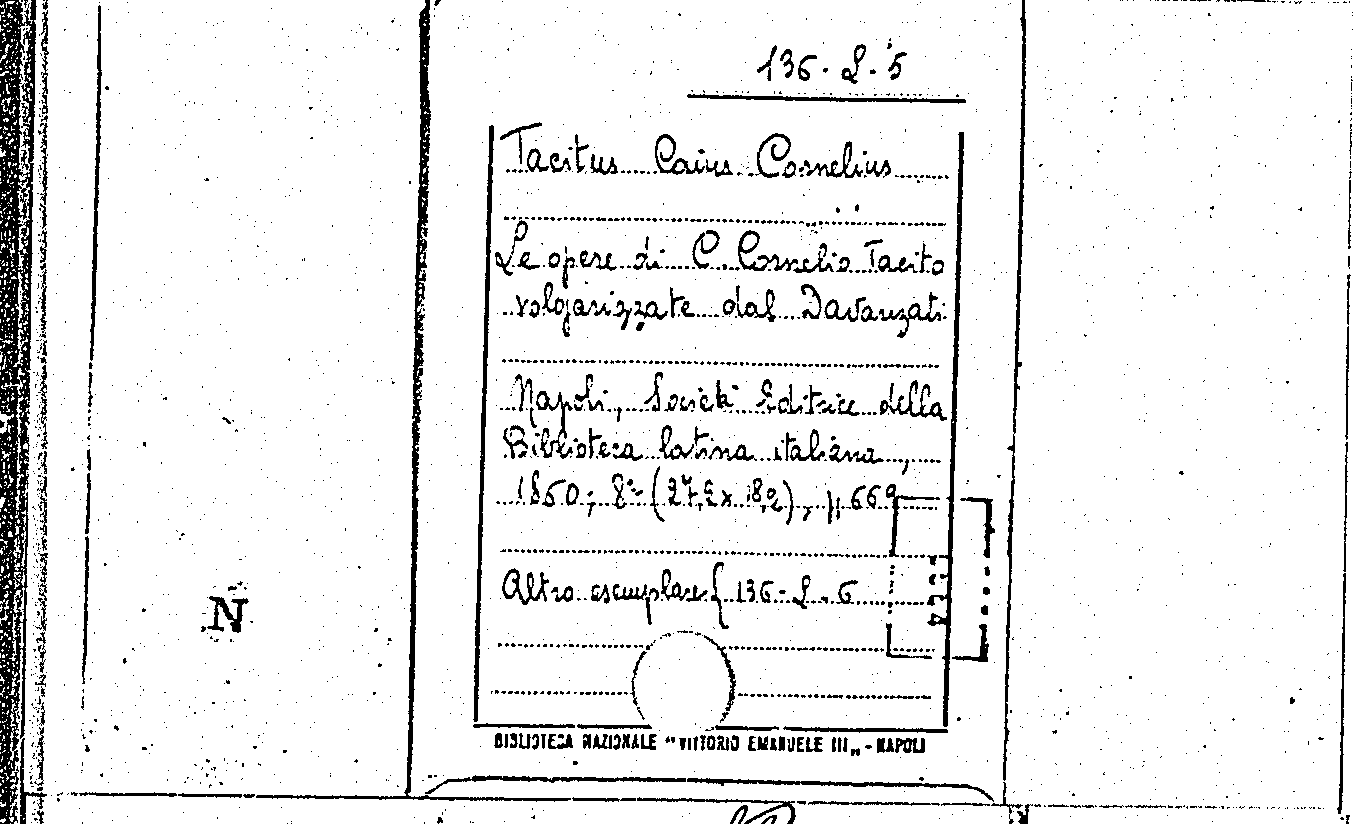 136-L-5
Tacitus Caius Cornelius
Le opere di C. Cornelio Tacito
volgarizzate dal Davanzati
Napoli, Società Editrice della
Biblioteca latina italiana,
1850; 8º (27,2 x 18,2), p. 669
Altro esemplare { 136-L-6
N
BIBLIOTECA NAZIONALE "VITTORIO EMANUELE III" - NAPOLI